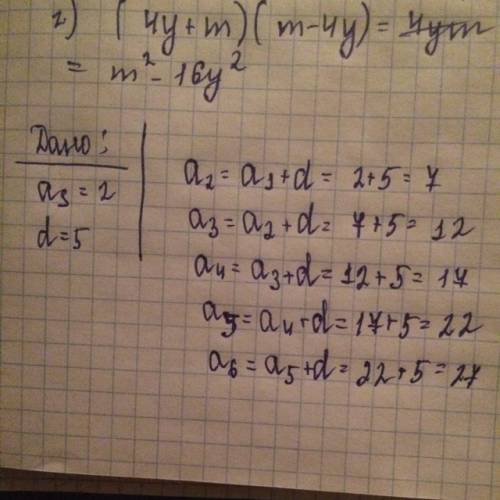 2) (4y+m)(m-4y)= 4ym
= m²-16y²
Дано:
a₁ = 2
d=5
a₂ = a₁+d = 2+5 = 7
a₃ = a₂+d = 7+5 = 12
a₄ = a₃+d = 12+5 = 17
a₅ = a₄+d = 17+5 = 22
a₆ = a₅+d = 22+5 = 27